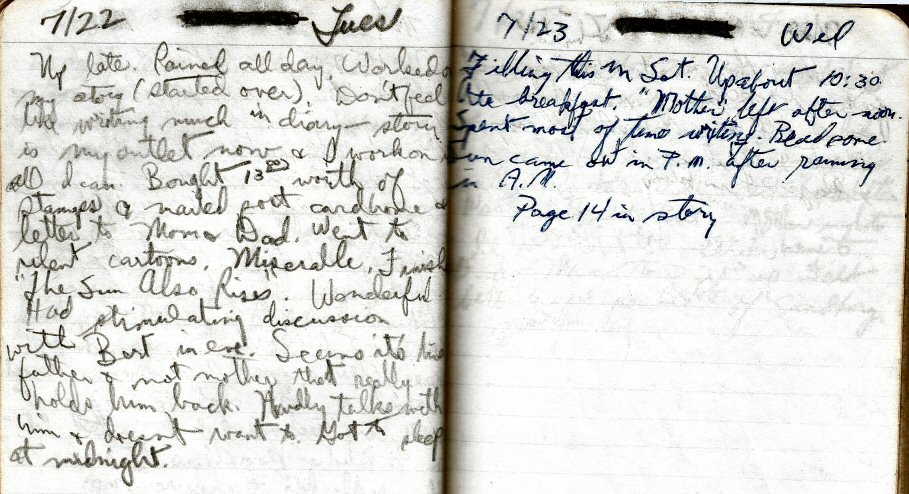 7/22 Tues
Up late. Rained all day. Worked o
my story (started over). Don't feel
like writing much in diary - story
is my outlet now & I work on
all I can. Bought 13.00 worth of
stamps & mailed post card home &
letter to Mom & Dad. Went to
silent cartoons. Miserable. Finish
"The Sun Also Rises". Wonderful.
Had stimulating discussion
with Bart in eve. Seems it's his
father & not mother that really
holds him back. Hardly talks with
him & doesn't want to. Got to sleep
at midnight.
7/23 Wed
Filling this in Sat. Up about 10:30
late breakfast. "Mother" left after noon.
Spent most of time writing. Read some.
Sun came out in P.M. after raining
in A.M.
Page 14 in story